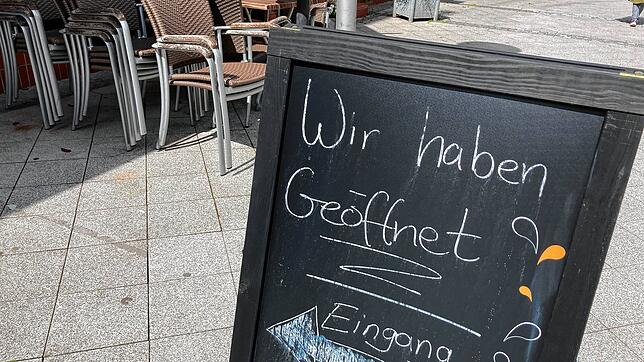 Wir haben
Geöffnet
Eingang